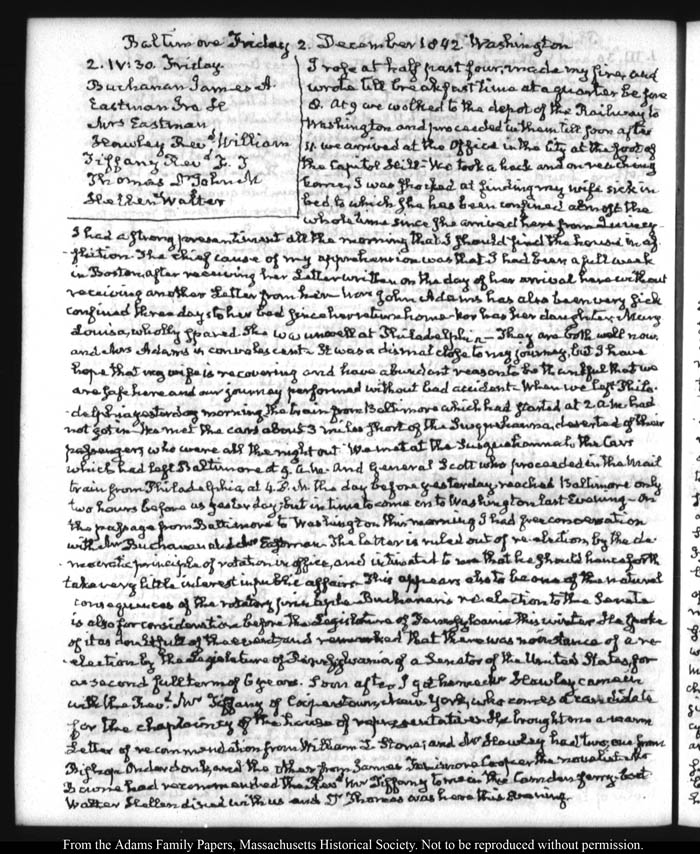 Baltimore Friday 2. December 1842 Washington
2. IV:30. Friday
Buchanan James
Eastman Ira
Mrs Eastman
Hawley Revd. William
Tiffany Revd.
Thomas Dr John M
Hellen Walter
I rose at half past four, made my fire, and
wrote till breakfast time at a quarter before
8. At 9 we walked to the depot of the Railway to
Washington and proceeded in them till soon after
11. we arrived at the Office in the City at the foot of
the Capitol Hill. We took a hack and on reaching
home, I was shocked at finding my wife sick in
bed to which she has been confined almost the
whole time since she arrived here from
I had a strong presentiment all the morning that I should find the house in af-
-fliction. The chief cause of my apprehension was that I had been a full week
in Boston, after receiving her Letter written on the day of her arrival here without
receiving another Letter from her. Mrs John Adams has also been very sick
confined three days to her bed since her return home. Nor has her daughter Mary
Louisa, wholly spared. She was unwell at Philadelphia. They are both well now.
and Mrs Adams is convalescent. It was a dismal close to my journey, but I have
hope that my wife is recovering and have abundant reason to be thankful that we
are safe here and our journey performed without bad accident. When we left Phila-
-delphia yesterday morning the train from Baltimore which had started at 2 a.m. had
not got in. We met the cars about 3 miles short of the Susquehanna, deserted of their
passengers who were all the night out. We met at the Susquehannah, the Cars
which had left Baltimore at 9. a.m. and General Scott who proceeded in the mail
train from Philadelphia, at 4. P.M. the day before yesterday, reached Baltimore only
two hours before us yesterday; but in time to come on to Washington last Evening. On
the passage from Baltimore to Washington this morning I had free conversation
with Mr Buchanan and Mr Eastman. The latter is ruled out of re-election, by the de-
mocratic principle of rotation in office, and intimated to me that he should henceforth
take very little interest in public affairs. This appears also to be one of the natural
consequences of the rotatory principle. Buchanan's re-election to the Senate
is also for consideration before the Legislature of Pennsylvania this winter. He spoke
of it as doubtfull of the event, and remarked that there was no instance of a re-
-election by the Legislature of Pennsylvania of a Senator of the United States, for
a second full term of 6 years. Soon after I got home Mr Hawley came in
with the Revd. Mr Tiffany of Cooperstown, New York, who comes a candidate
for the chaplaincy of the house of representatives. He brought me a warm
Letter of recommendation from William L. Stone; and Mr Hawley had two, one from
Bishop Onderdonk, and the other from James Fenimore Cooper the novelist. Mr
Bourne had recommended the Revd. Mr Tiffany to me in the Camden ferry-boat
Walter Hellen dined with us and Dr Thomas was here this Evening.
From the Adams Family Papers, Massachusetts Historical Society. Not to be reproduced without permission.